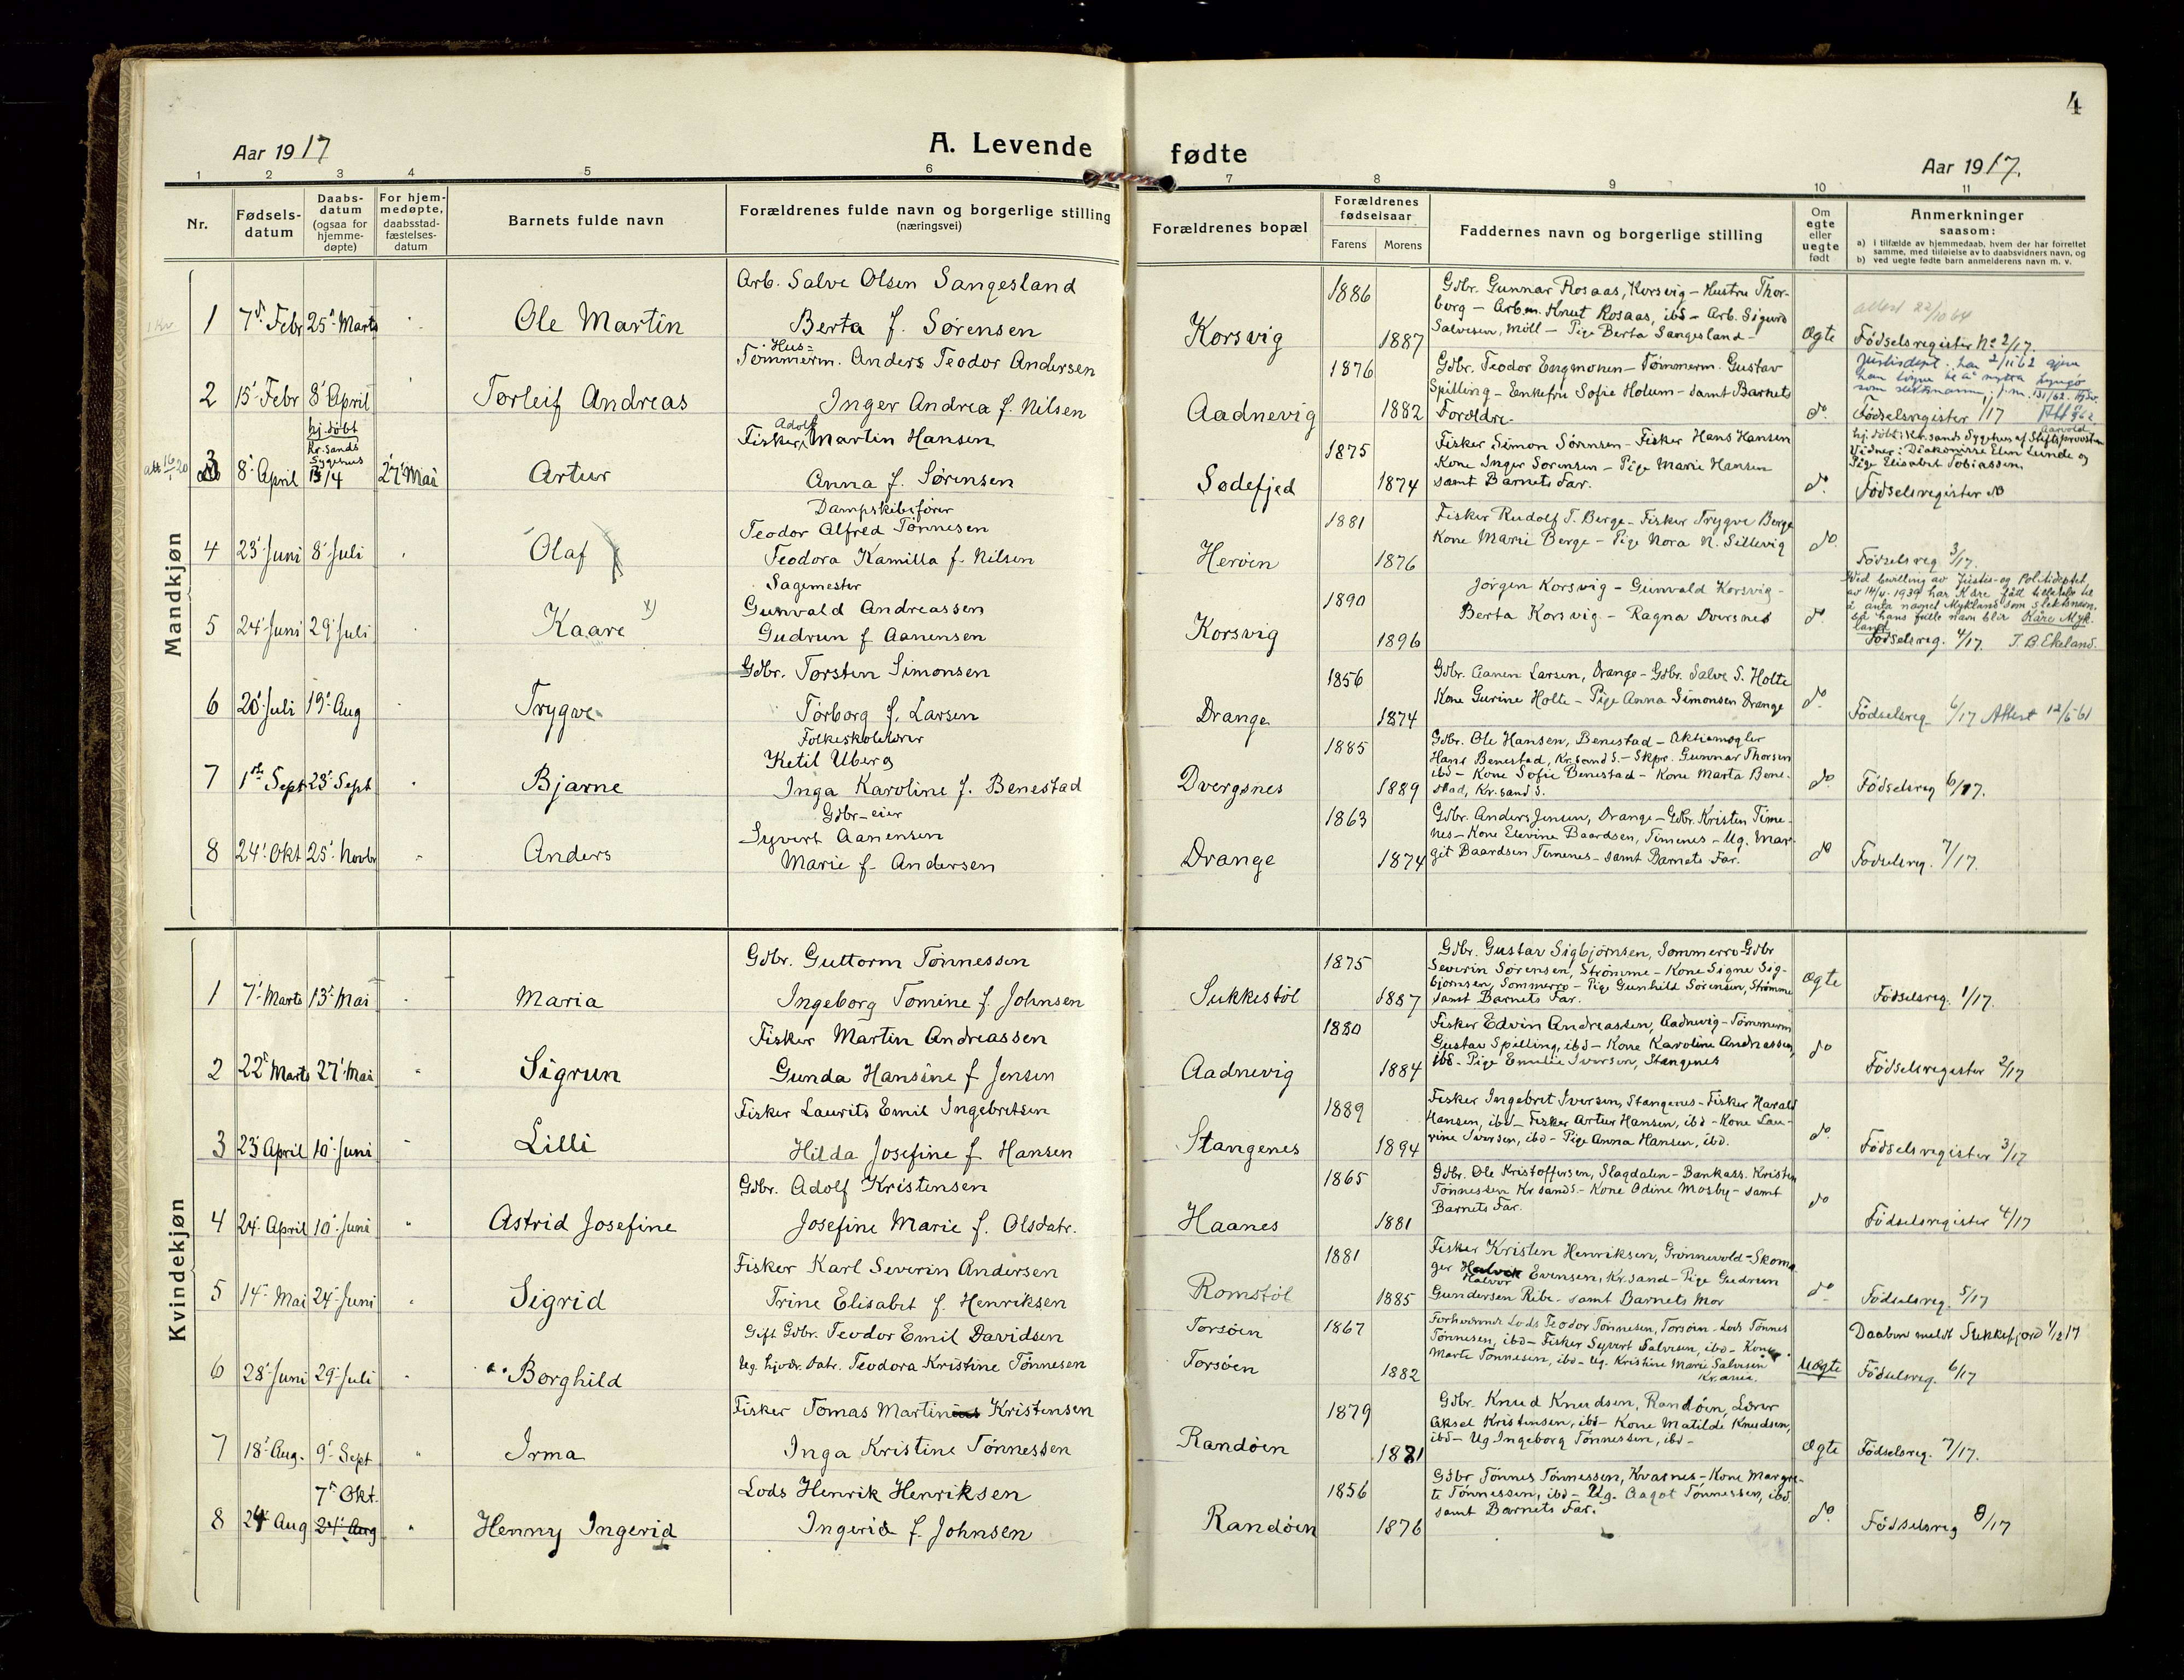 4
Aar 1917
A. Levende fødte
Aar 1917.
1 2 3 4 5 6 7 8 9 10 11
Nr.
Fødsels-
datum
Daabs-
datum
(ogsaa for
hjemme-
døpte)
For hjem-
medøpte,
daabsstad-
fæstelses-
datum
Barnets fulde navn
Forældrenes fulde navn og borgerlige stilling
(næringsvei)
Forældrenes bopæl
Forældrenes
fødselsaar
Farens Morens
Faddernes navn og borgerlige stilling
Om
egte
eller
uegte
født
Anmerkninger
saasom:
a) i tilfælde av hjemmedaab, hvem der har forrettet
samme, med tilføielse av to daabsvidners navn, og
b) ved uegte fødte barn anmelderens navn m. v.
Mandkjøn
1 7' Febr 25' Marts
Ole Martin
Arb. Salve Olsen Sangesland
Berta f. Sørensen
Korsvig
1886
1887
Gdbr. Gunnar Rosaas, Korsvig – Hustru Thor-
borg – Arbm. Knut Rosaas, ibd – Arb. Sigurd
Salvesen, Moll – Pige Berta Sangesland –
Ægte
attest 22/10 64
Fødselsregister No 2/17.
2 15' Febr 8' April
Torleif Andreas
Hus=
Tømmerm. Anders Teodor Andersen
Inger Andrea f. Nilsen
Aadnevig
1876
1882
Gdbr. Teodor Engmonen – Tømmerm. Gustav
Spilling – Enkefru Sofie Holum – samt Barnets
Foroldre.
do.
Justisdept. har 2/11 62
Fødselsregister /17
att 16/1 20
3 8' April
hj. døbt
Kr.sands
Sygehus
13/4
27' Mai
Artur
Adolf
Fisker, Martin Hansen
Anna f. Sørensen
Sodefjed
1875
1874
Fisker Simon Sørensen – Fisker Hans Hansen
Kone Inger Sorensen – Pige Marie Hansen
samt Barnets Far.
do.
Aarvold
hj. døbt i Kr.sands Sygehus af Stiftsprovst
Vidner: Diakonisse Elen Lunde og
Pige Elisabet Tobiassen.
Fødselsregister do
4 23' Juni 8' Juli
Olaf
Dampskibsfører
Teodor Alfred Tønnesen
Teodora Kamilla f. Nilsen
Herøen
1881
1876
Fisker Rudolf T. Berge – Fisker Trygve Berge
Kone Marie Berge – Pige Nora N. Sillevig
do.
Fødselsreg 3/17.
5 24' Juni 29' Juli
Kaare x)
Sagemester
Gunvald Andreassen
Gudrun f Aanensen
Korsvig
1890
1896
Jorgen Korsvig – Gunvald Korsvig –
Berta Korsvig – Ragna Dversnes
do.
Ved bevilling av Justis- og Politideptet,
av 14/4. 1939 har Kåre fått tillatelse til
å anta navnet Mykland som slektsnavn,
så hans fulle navn blir Kåre Myk-
land
Fødselsreg. 4/17 T. B. Ekeland.
6 20' Juli 19' Aug
Trygve
Gdbr. Torsten Simonsen
Torborg f. Larsen
Drange
1856
1874
Gdbr. Aanen Larsen, Drange – Gdbr. Salve S. Holte
Kone Gurine Holte – Pige Anna Simonsen Drange
do.
Fødselsreg 6/17 Attest 12/5 61
7 1ste Sept 23' Sept
Bjarne
Folkeskolelærer
Ketil Uberg
Inga Karoline f. Benestad
Dvergsnes
1885
1889
Gdbr. Ole Hansen, Benestad – Aktiemægler
Hans Benestad, Kr.sand S. – Skpr. Gunnar Thorsen
ibd – Kone Sofie Benestad – Kone Marta Bene-
stad, Kr.sand S.
do.
Fødselsreg 6/17.
8 24' Okt 25' Novbr
Anders
Gdbr – eier
Syvert Aanensen
Marie f. Andersen
Drange
1863
1874
Gdbr. Anders Jensen, Drange – Gdbr. Kristen Time-
nes – Kone Elevine Baardsen, Timenes – Ug. Mar-
git Baardsen Timenes – samt Barnets Far.
do
Fødselsreg. 7/17.
Kvindekjøn
1 7' Marts 13' Mai
Maria
Gdbr. Guttorm Tønnessen
Ingeborg Tomine f. Johnsen
Sukkestøl
1875
1887
Gdbr. Gustav Sigbjørnsen, Sommerro – Gdbr
Severin Sørensen, Strømme – Kone Signe Sig-
bjørnsen, Sommerro – Pige Gunhild Sørensen, Strømme
samt Barnets Far.
Ægte
Fødselsreg. 1/17.
2 22' Marts 27' Mai
Sigrun
Fisker Martin Andreassen
Gunda Hansine f Jensen
Aadnevig
1880
1884
Fisker Edvin Andreassen, Aadnevig – Tømmerm
Gustav Spilling, ibd – Kone Karoline Andreassen,
ibd – Pige Emilie Iversen, Stangenes
do
Fødselsregister 2/17
3 23' April 10' Juni
Lilli
Fisker Laurits Emil Ingebretsen
Hilda Josefine f Hansen
Stangenes
1889
1894
Fisker Ingebret Iversen, Stangenes – Fisker Harald
Hansen, ibd – Fisker Artur Hansen, ibd – Kone Lau-
rine Iversen, ibd – Pige Anna Hansen, ibd.
do.
Fødselsregister 3/17
4 24' April 10' Juni
Astrid Josefine
Gdbr. Adolf Kristensen
Josefine Marie f. Olsdatr.
Haanes
1865
1881
Gdbr. Ole Kristoffersen, Slagdalen – Bankass. Kristen
Tønnessen Kr.sand S. – Kone Odine Mosby – samt
Barnets Far.
do
Fødselsregister 4/17
5 14' Mai 24' Juni
Sigrid
Fisker Karl Severin Andersen
Trine Elisabet f. Henriksen
Romstøl
1881
1885
Fisker Kristen Henriksen, Grønnevold – Skoma-
ger Halvor Evensen, Kr.sand – Pige Gudrun
Gundersen Ribe – samt Barnets Mor
do
Fødselsreg. 5/17
6 28' Juni 29' Juli
Borghild
Gift Gdbr. Teodor Emil Davidsen
Ug. hjvdr. Datr. Teodora Kristine Tønnesen
Torsøen
Torsøen
1867
1882
Forhenværende Lods Teodor Tønnesen, Torsøen – Lods Tønnes
Tønnesen, ibd – Fisker Syvert Salvesen, ibd – Kone
Marte Tønnesen, ibd – Ug. Kristine Marie Salvesen
Kr.ania.
Uægte
Daaben meldt Flekkefjord 1/12 17
Fødselsreg. 6/17
7 18' Aug. 9' Sept
Irma
Fisker Tomas Martinius Kristensen
Inga Kristine Tønnessen
Randøen
1879
1881
Gdbr. Knud Knudsen, Randøen, Lærer
Aksel Kristensen, ibd – Kone Matilde Knudsen,
ibd – Ug Ingeborg Tønnessen, ibd –
Ægte
Fødselsreg. 7/17.
8 24 Aug
7' Okt.
24' Aug
Henny Ingerid
Lods Henrik Henriksen
Ingerid f. Johnsen
Randøen
1856
1876
Gdbr Tønnes Tønnessen, Kvarnes – Kone Margre-
te Tønnessen, ibd – Ug. Aagot Tønnessen, ibd
samt Barnets Far.
do.
Fødselsreg 8/17